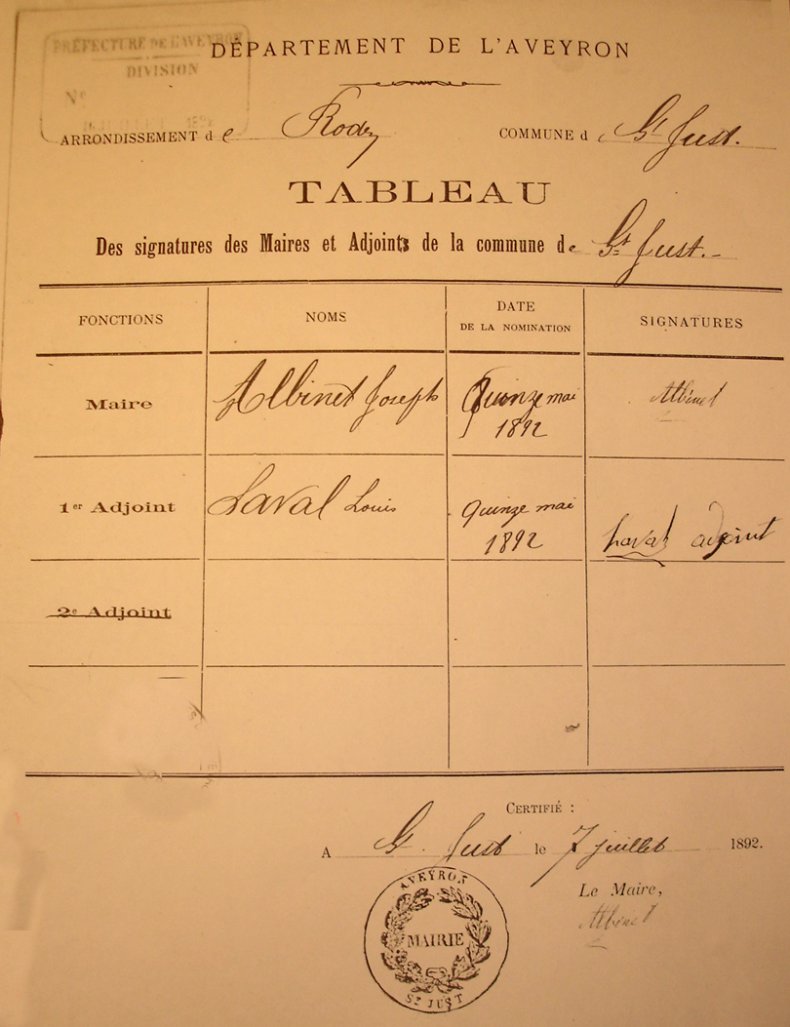 PRÉFECTURE DE L'AVEYRON
DIVISION
No
DÉPARTEMENT DE L'AVEYRON
ARRONDISSEMENT de Rodez COMMUNE d St Just.
TABLEAU
Des signatures des Maires et Adjoints de la commune de St Just.
FONCTIONS NOMS DATE DE LA NOMINATION SIGNATURES
Maire Albinet Joseph Quinze mai 1892 Albinet
1er Adjoint Laval Louis quinze mai 1892 Laval adjoint
2e Adjoint
CERTIFIÉ :
A St Just le 7 juillet 1892.
Le Maire,
Albinet
AVEYRON
MAIRIE
ST JUST